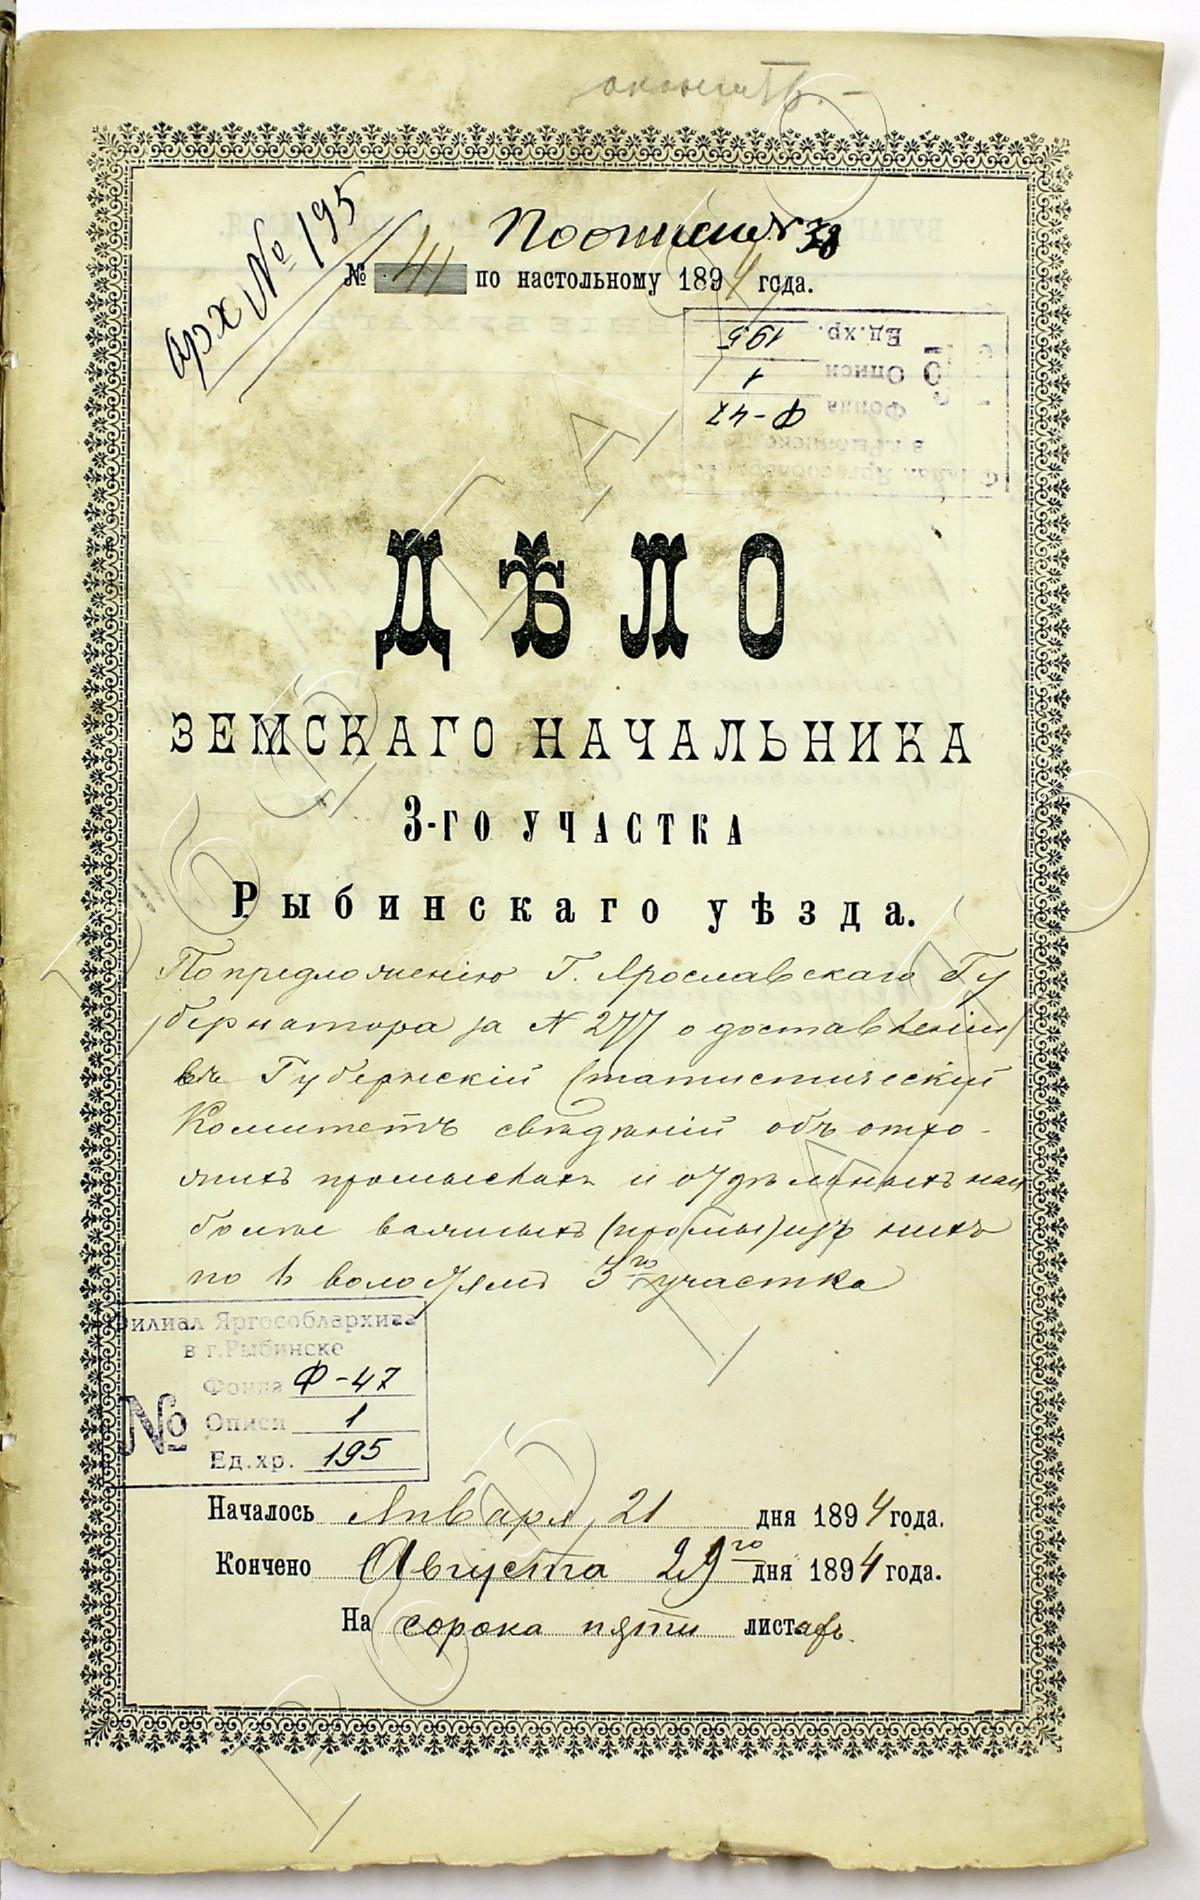 арх № 195
По описи № 38
№ 41 по настольному 1894 года.
Ед.хр. 195
Описи 1
Фонда Ф-47
в г.Рыбинске
ДѢЛО
ЗЕМСКАГО НАЧАЛЬНИКА
3-ГО УЧАСТКА
Рыбинскаго уѣзда.
По предложенію Г. Ярославскаго Гу
бернатора за № 277 о доставленіи
въ Губернскій Статистическій
Комитетъ свѣдѣній объ отхо-
жихъ промыслахъ и отдѣльныхъ наи
болѣе важныхъ изъ нихъ
по волостямъ 3го участка
Филиал Яргособлархива
в г.Рыбинске
Фонда Ф-47
№ Описи 1
Ед.хр. 195
Началось Января 21 дня 1894 года.
Кончено Августа 29го дня 1894 года.
На сорока пяти листахъ.
РбФ ГАЯО
РбФ ГАЯО